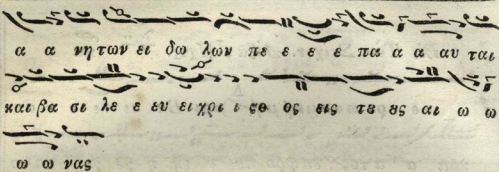 α α νη των ει δω λων πε ε ε ε πα α α αυ ται
και βα σι λε ε ευ ει χρι ι ςθ ος εις τε ες αι ω ω
ω ω νας